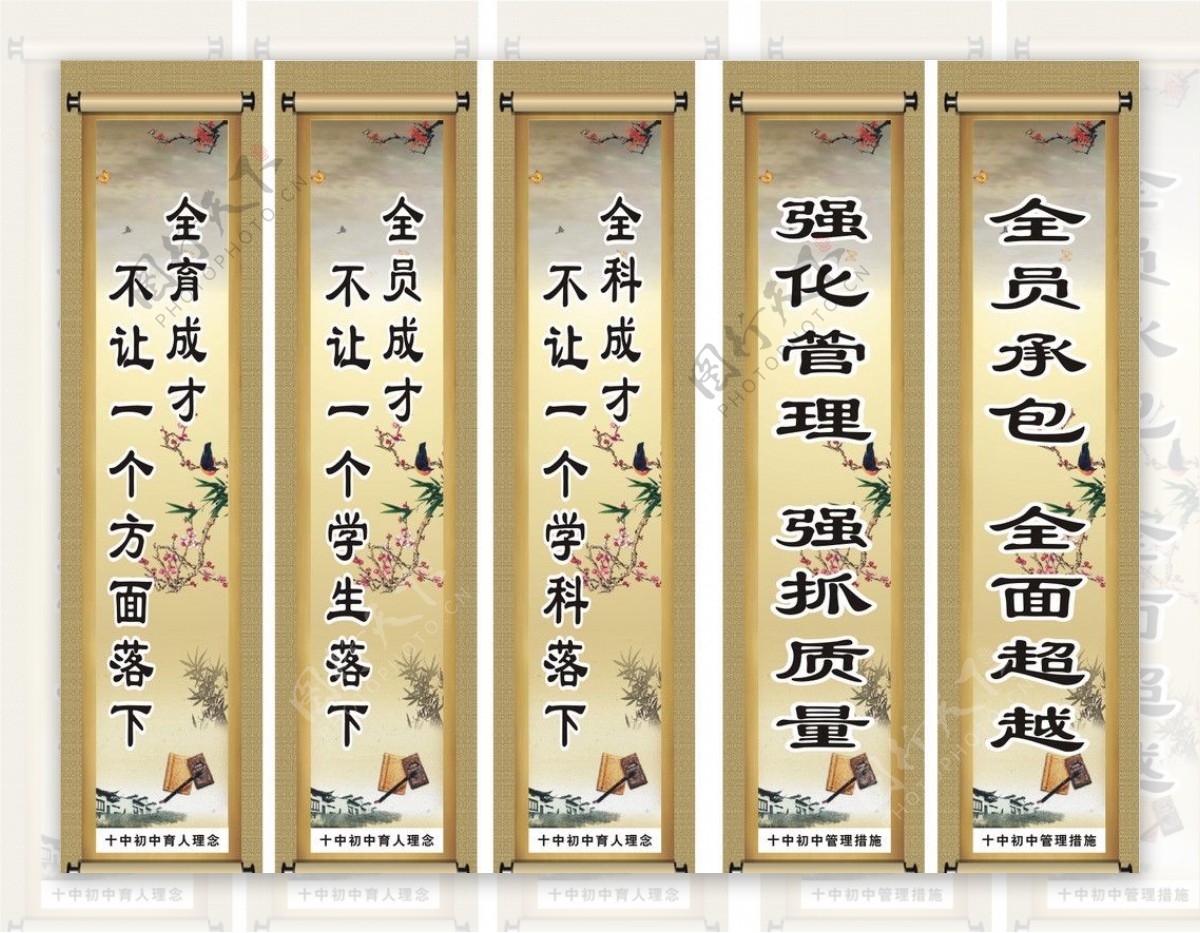 全育成才
不让一个方面落下
十中初中育人理念
全员成才
不让一个学生落下
十中初中育人理念
全科成才
不让一个学科落下
十中初中育人理念
强化管理 强抓质量
十中初中管理措施
全员承包 全面超越
十中初中管理措施
图行天下
PHOTOPHOTO.CN